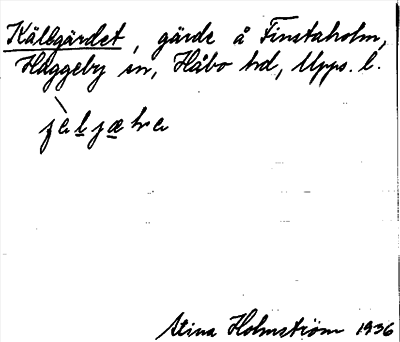 Källgärdet, gärde å Finstaholm,
Häggeby sn, Håbo hd, Upps. l.
Stina Holmström 1936